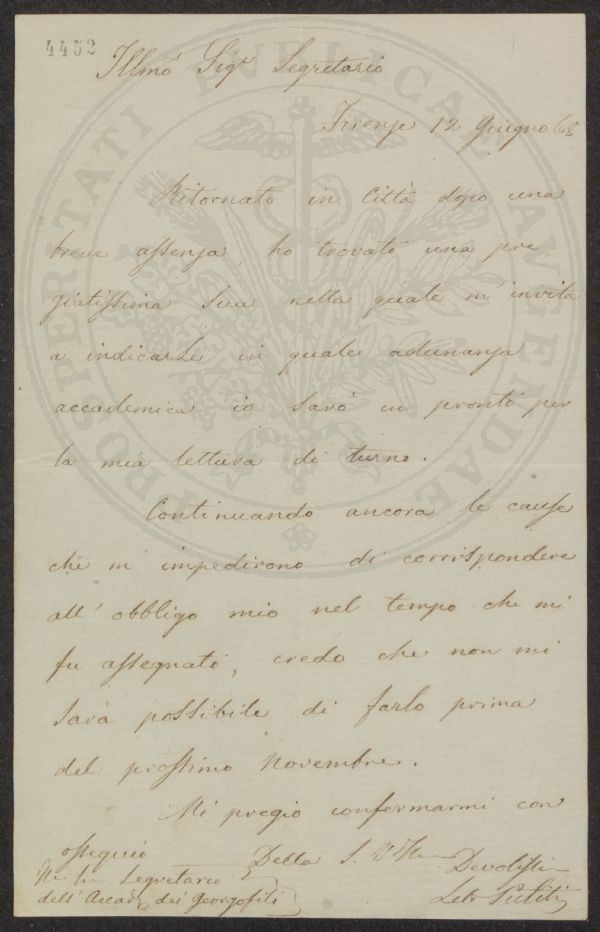 4452
Illmo Sigr Segretario
Firenze 12 Giugno 68
Ritornato in Città dopo una
breve assenza, ho trovato una pre
giatissima Sua nella quale m'invita
a indicarle in quale adunanza
accademica io sarò in pronto per
la mia lettura di turno.
Continuando ancora le cause
che m'impedirono di corrispondere
all'obbligo mio nel tempo che mi
fu assegnato, credo che non mi
sarà possibile di farlo prima
del prossimo Novembre.
Mi pregio confermarmi con
ossequio
Della S. V. Ill
Devotissi
Segretario
dell'Accad dei Georgofili
PROSPERITATI PUBLICAE AUGENDAE